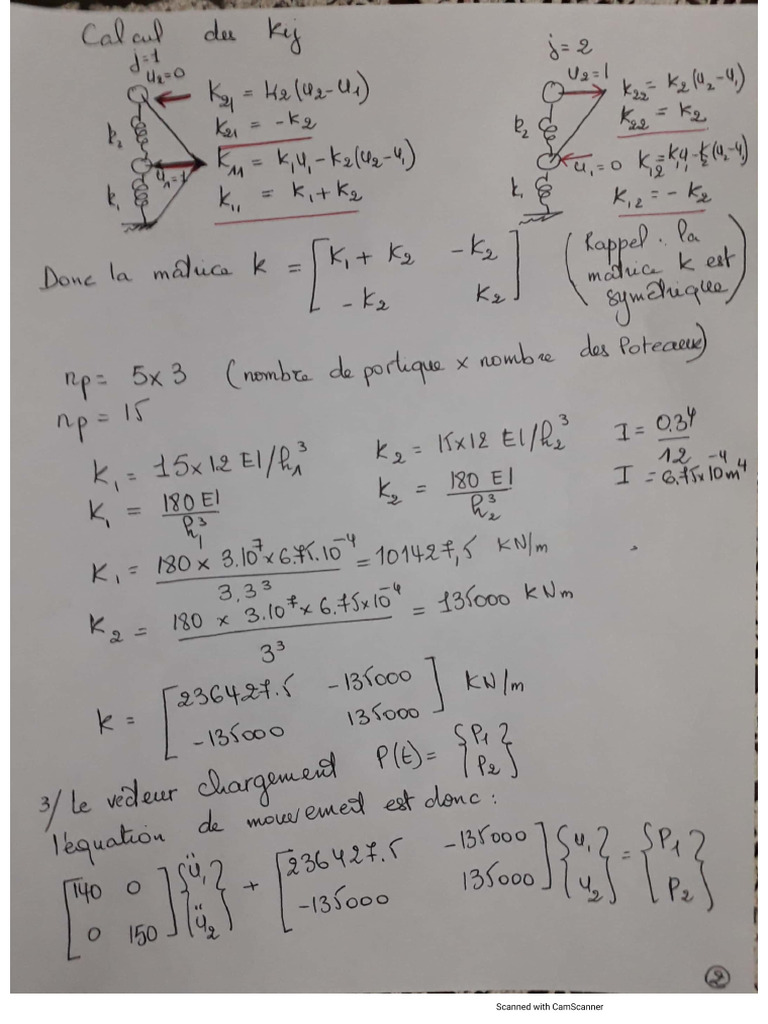 Calcul des Kij
j=1
u2=0
K21 = k2(u2-u1)
K21 = -k2
k2
u1=1
K11 = k1u1-k2(u2-u1)
K11 = k1+k2
k1
j=2
u2=1
K22 = k2(u2-u1)
K22 = k2
k2
u1=0
K12 = k1u1-k2(u2-u1)
K12 = -k2
k1
Donc la matrice K = [K1+K2 -K2
-K2 K2]
(Rappel : la
matrice K est
symétrique)
np = 5x3 (nombre de portique x nombre des Poteaux)
np = 15
K1 = 15x12 EI/h1³ K2 = 15x12 EI/h2³ I = 0.3⁴/12
K1 = 180 EI/h1³ K2 = 180 EI/h2³ I = 6.75x10⁻⁴ m⁴
K1 = 180 x 3.10⁷ x 6.75.10⁻⁴ / 3.3³ = 101427,5 KN/m
K2 = 180 x 3.10⁷ x 6.75x10⁻⁴ / 3³ = 135000 KNm
K = [236427.5 -135000
-135000 135000] KN/m
3/ Le vecteur chargement P(t) = {P1
P2}
l'équation de mouvement est donc :
[140 0
0 150] {ü1
ü2} + [236427.5 -135000
-135000 135000] {u1
u2} = {P1
P2}
2
Scanned with CamScanner